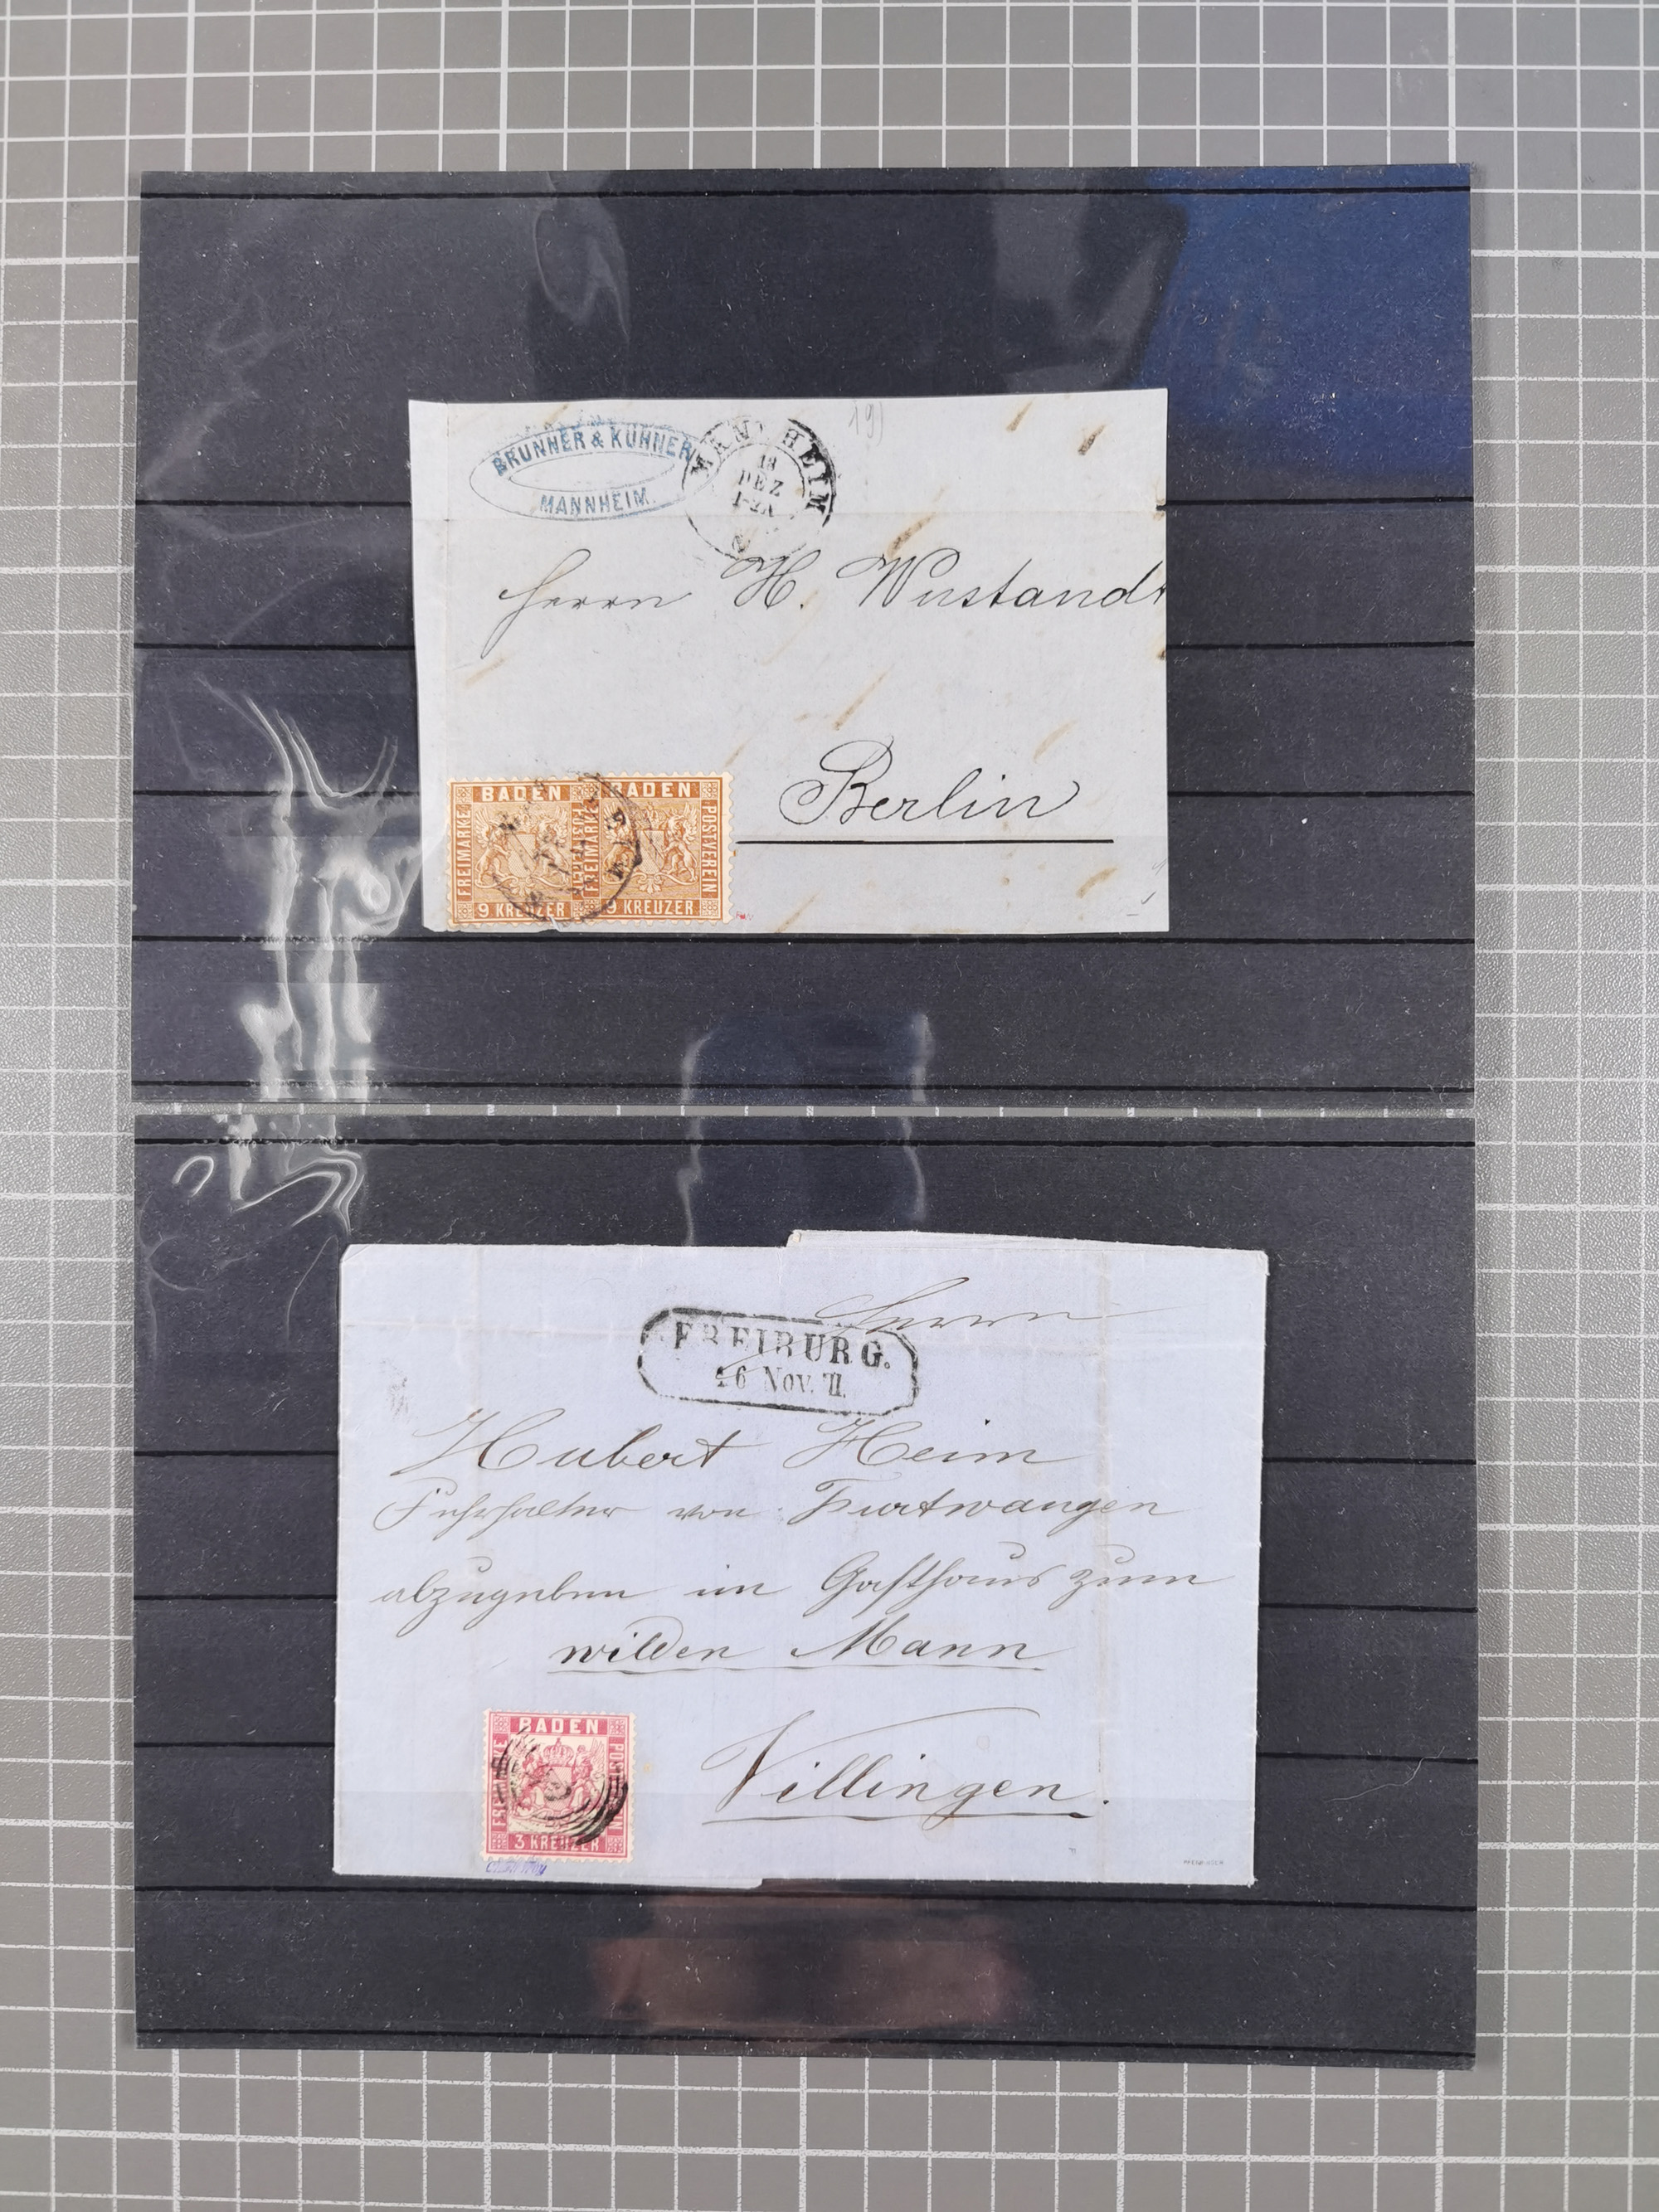 BRUNNER & KUHNER
MANNHEIM.
MANNHEIM
18
DEZ
19)
Herrn H. Wustandt
Berlin
BADEN
FREIMARKE
POSTVEREIN
9 KREUZER
BADEN
FREIMARKE
POSTVEREIN
9 KREUZER
Herrn
FREIBURG.
Nov.
Hubert Heim
Fuhrhalter von Furtwangen
abzugeben im Gasthaus zum
wilden Mann
Villingen.
BADEN
FREIMARKE
POSTVEREIN
3 KREUZER